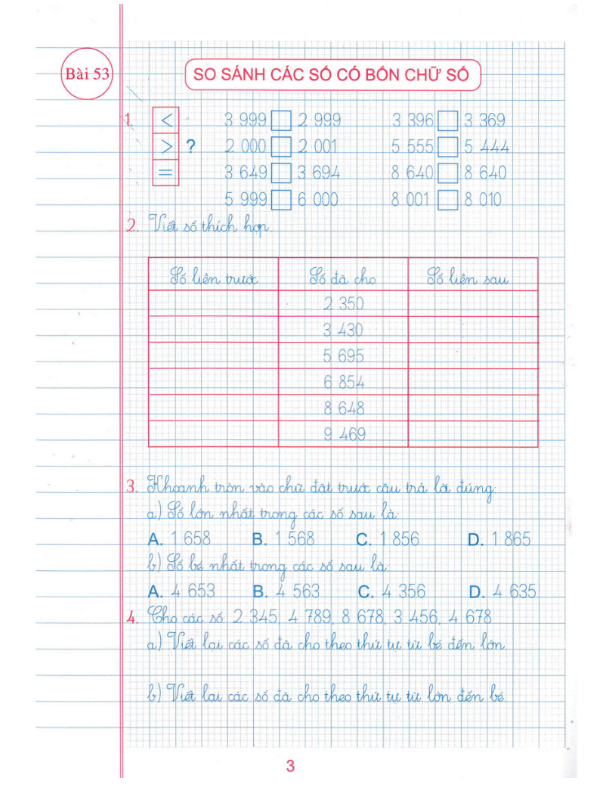 Bài 53
SO SÁNH CÁC SỐ CÓ BỐN CHỮ SỐ
1. < 3 999 2 999 3 396 3 369
> ? 2 000 2 001 5 555 5 444
= 3 649 3 694 8 640 8 640
5 999 6 000 8 001 8 010
2. Viết số thích hợp
Số liền trước Số đã cho Số liền sau
2 350
3 430
5 695
6 854
8 648
9 469
3. Khoanh tròn vào chữ đặt trước câu trả lời đúng
a) Số lớn nhất trong các số sau là
A. 1 658 B. 1 568 C. 1 856 D. 1 865
b) Số bé nhất trong các số sau là
A. 4 653 B. 4 563 C. 4 356 D. 4 635
4. Cho các số 2 345, 4 789, 8 678, 3 456, 4 678
a) Viết lại các số đã cho theo thứ tự từ bé đến lớn
b) Viết lại các số đã cho theo thứ tự từ lớn đến bé
3